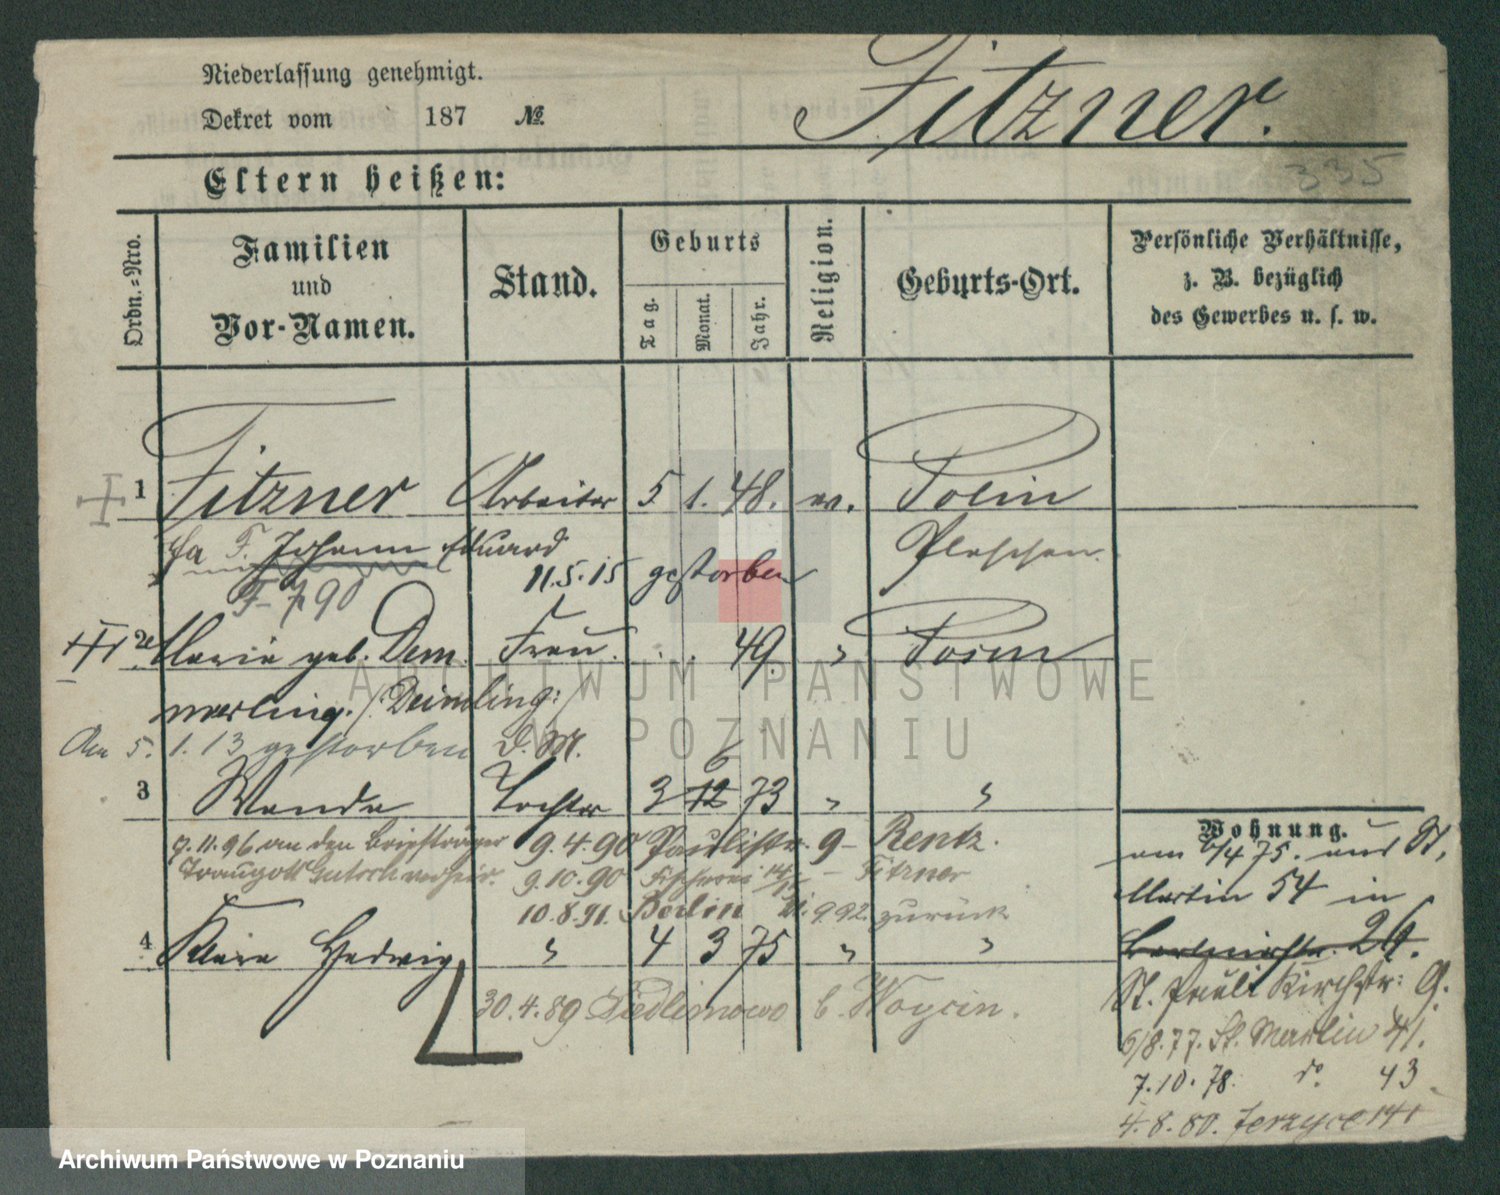 Niederlassung genehmigt.
Dekret vom 187 №
Fitzner.
335
Eltern heißen:
Ordn.-Nro.
Familien
und
Vor-Namen.
Stand.
Geburts
Tag.
Monat.
Jahr.
Religion.
Geburts-Ort.
Persönliche Verhältnisse,
z. B. bezüglich
des Gewerbes u. s. w.
1 Fitzner Arbeiter 5. 1. 48. ev.
Johann Eduard Pleschen
11.5.15 gestorben
F- 790
2 Maria geb. Dem Frau. 49. " Posen
merling. /: Deimling:/
Am 5. 1. 13 gestorben d. M. 6
3 Wanda Tochter 3 12 73 " "
Wohnung.
7.11.96 an den Briefträger 9.4.90 Paulistr. 9 - Rentz.
Traugott verheir. 9.10.90 - Fitzner
10.8.91. Berlin 9.92. zurück
4 Klara Hedwig " 4 3 75 " "
30.4.89 b. Woycin.
am 6/4 75. aus St.
Martin 54 in
26.
St. Pauli Kirchstr: 9.
6/8.77. St. Martin 41.
7.10.78. do. 43
4.8.80. Jerzyce 141
ARCHIWUM PAŃSTWOWE
W POZNANIU
Archiwum Państwowe w Poznaniu